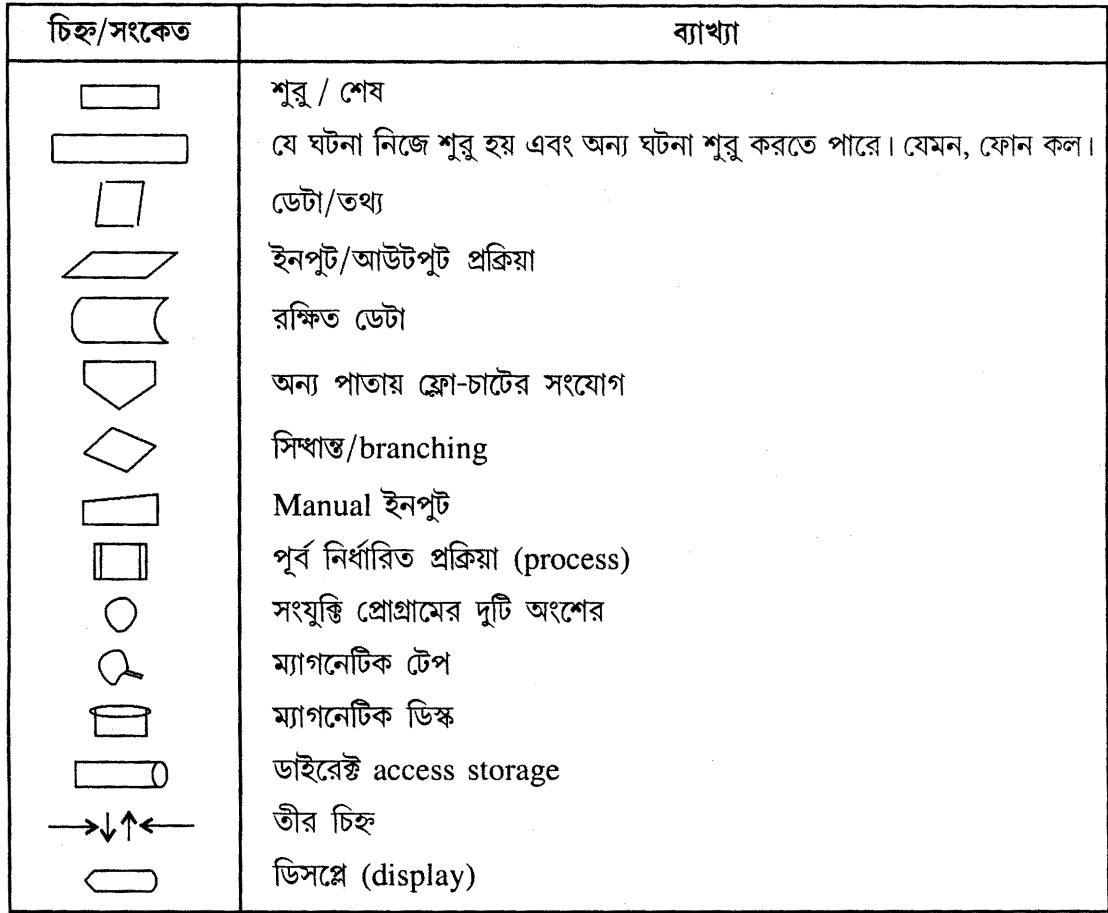 চিহ্ন/সংকেত ব্যাখ্যা
শুরু / শেষ
যে ঘটনা নিজে শুরু হয় এবং অন্য ঘটনা শুরু করতে পারে। যেমন, ফোন কল।
ডেটা/তথ্য
ইনপুট/আউটপুট প্রক্রিয়া
রক্ষিত ডেটা
অন্য পাতায় ফ্লো-চার্টের সংযোগ
সিদ্ধান্ত/branching
Manual ইনপুট
পূর্ব নির্ধারিত প্রক্রিয়া (process)
সংযুক্তি প্রোগ্রামের দুটি অংশের
ম্যাগনেটিক টেপ
ম্যাগনেটিক ডিস্ক
ডাইরেক্ট access storage
তীর চিহ্ন
ডিসপ্লে (display)